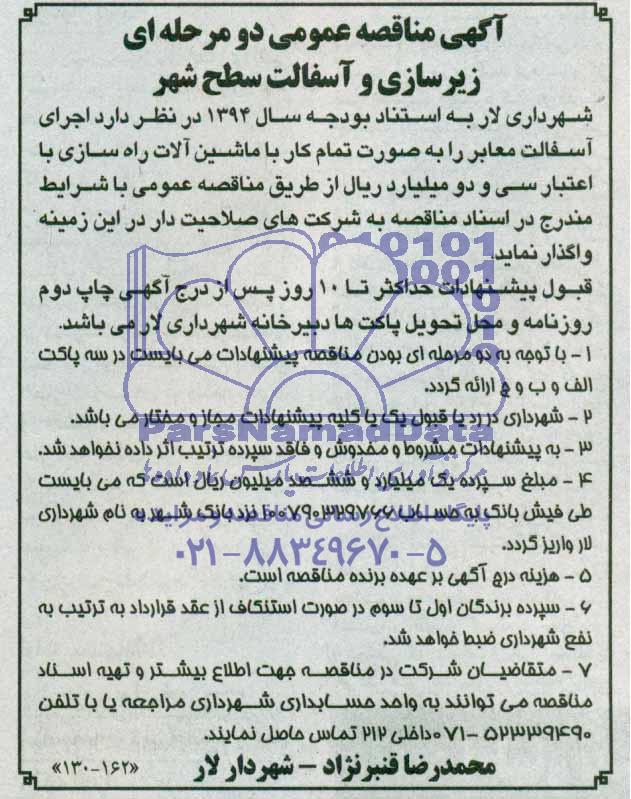 آگهی مناقصه عمومی دو مرحله ای
زیرسازی و آسفالت سطح شهر
شهرداری لار به استناد بودجه سال ۱۳۹۴ در نظر دارد اجرای
آسفالت معابر را به صورت تمام کار با ماشین آلات راه سازی با
اعتبار سی و دو میلیارد ریال از طریق مناقصه عمومی با شرایط
مندرج در اسناد مناقصه به شرکت های صلاحیت دار در این زمینه
واگذار نماید.
قبول پیشنهادات حداکثر تا ۱۰ روز پس از درج آگهی چاپ دوم
روزنامه و محل تحویل پاکت ها دبیرخانه شهرداری لار می باشد.
۱- با توجه به دو مرحله ای بودن مناقصه پیشنهادات می بایست در سه پاکت
الف و ب و ج ارائه گردد.
۲- شهرداری در رد یا قبول یک یا کلیه پیشنهادات مجاز و مختار می باشد.
ParsNamadData
۳- به پیشنهادات مشروط و مخدوش و فاقد سپرده ترتیب اثر داده نخواهد شد.
۴- مبلغ سپرده یک میلیارد و ششصد میلیون ریال است که می بایست
طی فیش بانک به حساب ۱۰۰۷۹۰۳۲۹۷۶۶ نزد بانک شهر به نام شهرداری
پایگاه اطلاع رسانی مناقصه و مزایده
لار واریز گردد.
۰۲۱-۸۸۳۴۹۶۷۰-۵
۵- هزینه درج آگهی بر عهده برنده مناقصه است.
۶- سپرده برندگان اول تا سوم در صورت استنکاف از عقد قرارداد به ترتیب به
نفع شهرداری ضبط خواهد شد.
۷- متقاضیان شرکت در مناقصه جهت اطلاع بیشتر و تهیه اسناد
مناقصه می توانند به واحد حسابداری شهرداری مراجعه یا با تلفن
۵۲۳۳۹۴۹۰-۰۷۱ داخلی ۲۱۲ تماس حاصل نمایند.
محمدرضا قنبرنژاد – شهردار لار
«۱۳۰-۱۶۲»